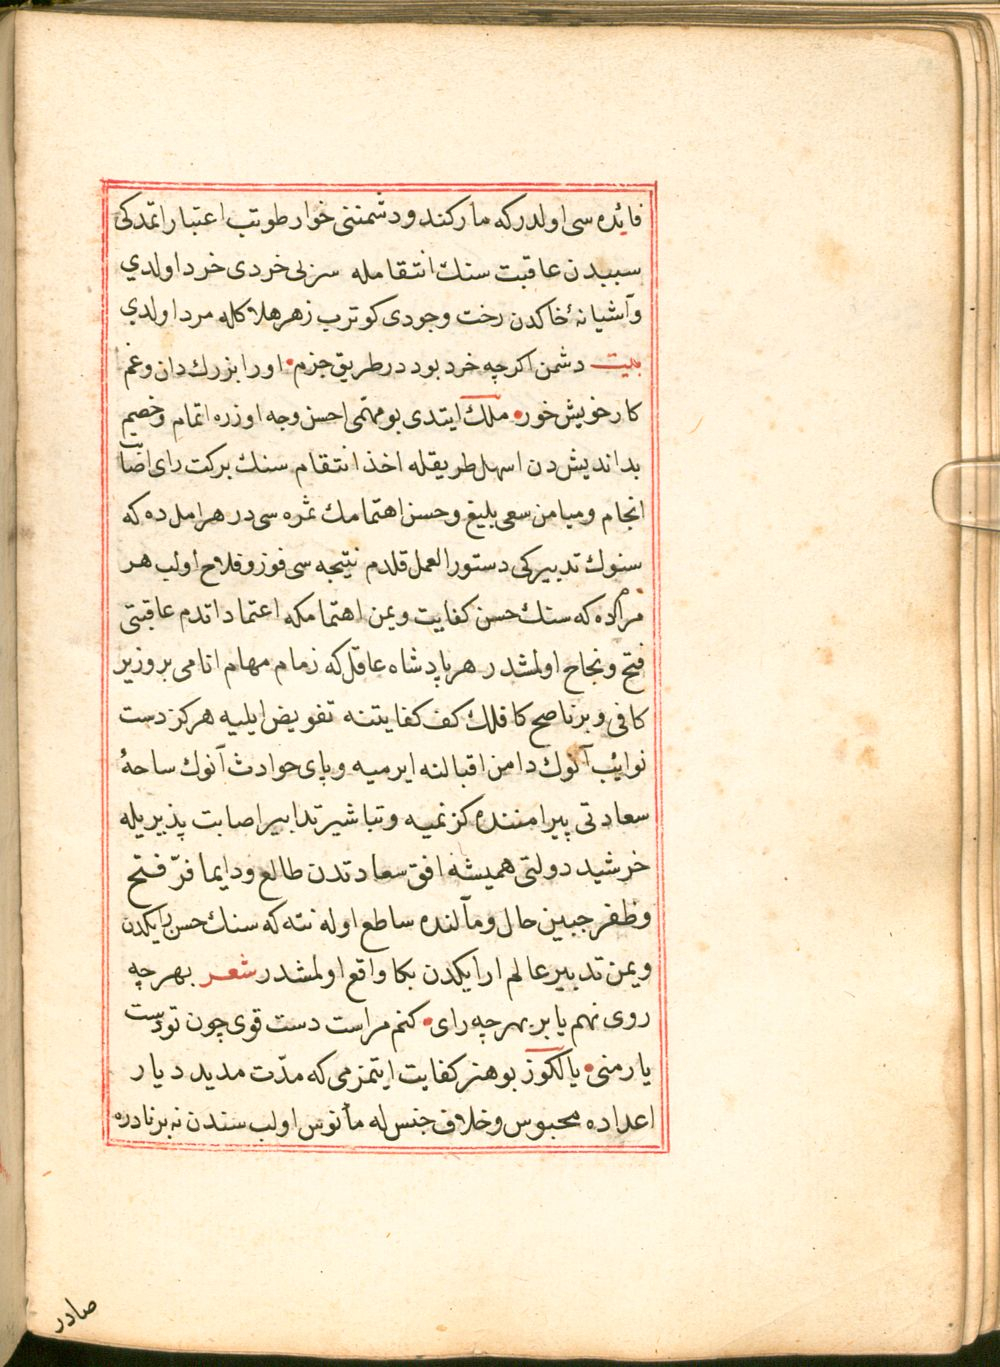 فائده سی اولدرکه مار کند و دشمننی خوار طوتب اعتبار اتمدکی
سببدن عاقبت سنك انتقامله سزلی خردی خرد اولدي
و آشیانۀ خاکدن رخت وجودی کوترب زهر هلاکله مرد اولدي
بیت دشمن اکرچه خرد بود در طریق جزم • اورا بزرك دان و غم
کار خویش خور • ملك ایتدی بو مهمّی احسن وجه اوزره اتمام و خصیم
بداندیش دن اسهل طریقله اخذ انتقام سنك برکت رای اصابت
انجام و میامن سعی بلیغ و حسن اهتمامك ثمره سی در هر امل ده که
سنوك تدبیرکی دستور العمل قلدم نتیجه سی فوز و فلاح اولب هر
مرامده که سنك حسن کفایت و یمن اهتمامکه اعتماد اتدم عاقبتی
فتح و نجاح اولمشدر هر پادشاه عاقل که زمام مهام انامی بر وزیر
کافی و بر ناصح کاملك کف کفایتنه تفویض ایلیه هرکز دست
نوایٔب آنوك دامن اقبالنه ایرمیه و پای حوادث آنوك ساحۀ
سعادتی پیرامننده کزنمیه و تباشیر تدابیر اصابت پذیریله
خرشید دولتی همیشه افق سعادتدن طالع و دایما فرّ فتح
و ظفر جبین حال و مآلنده ساطع اوله نته که سنك حسن رایکدن
و یمن تدبیر عالم ارایکدن بکا واقع اولمشدر شعر بهرچه
روی نهم یا بر بهرچه رای • کنم مراست دست قوی چون تو دست
یار منی • یا لکوز بو هنر کفایت ایتمزمی که مدّت مدید دیار
اعداده محبوس و خلاف جنس له مأنوس اولب سندن نه بر نادره
صادر